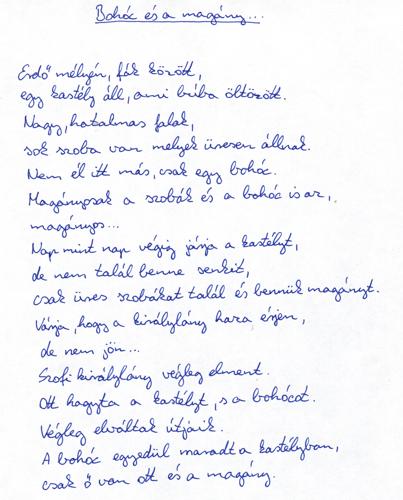 Bohóc és a magány...
Erdő mélyén, fák között,
egy kastély áll, ami búba öltözött.
Nagy, hatalmas falak,
sok szoba van melyek üresen állnak.
Nem él itt más, csak egy bohóc.
Magányosak a szobák és a bohóc is az,
magányos...
Nap mint nap végig járja a kastélyt,
de nem talál benne senkit,
csak üres szobákat talál és bennük magányt.
Várja, hogy a királylány haza érjen,
de nem jön...
Szofi királylány végleg elment.
Ott hagyta a kastélyt, s a bohócot.
Végleg elváltak útjaik.
A bohóc egyedül maradt a kastélyban,
csak ő van ott és a magány.